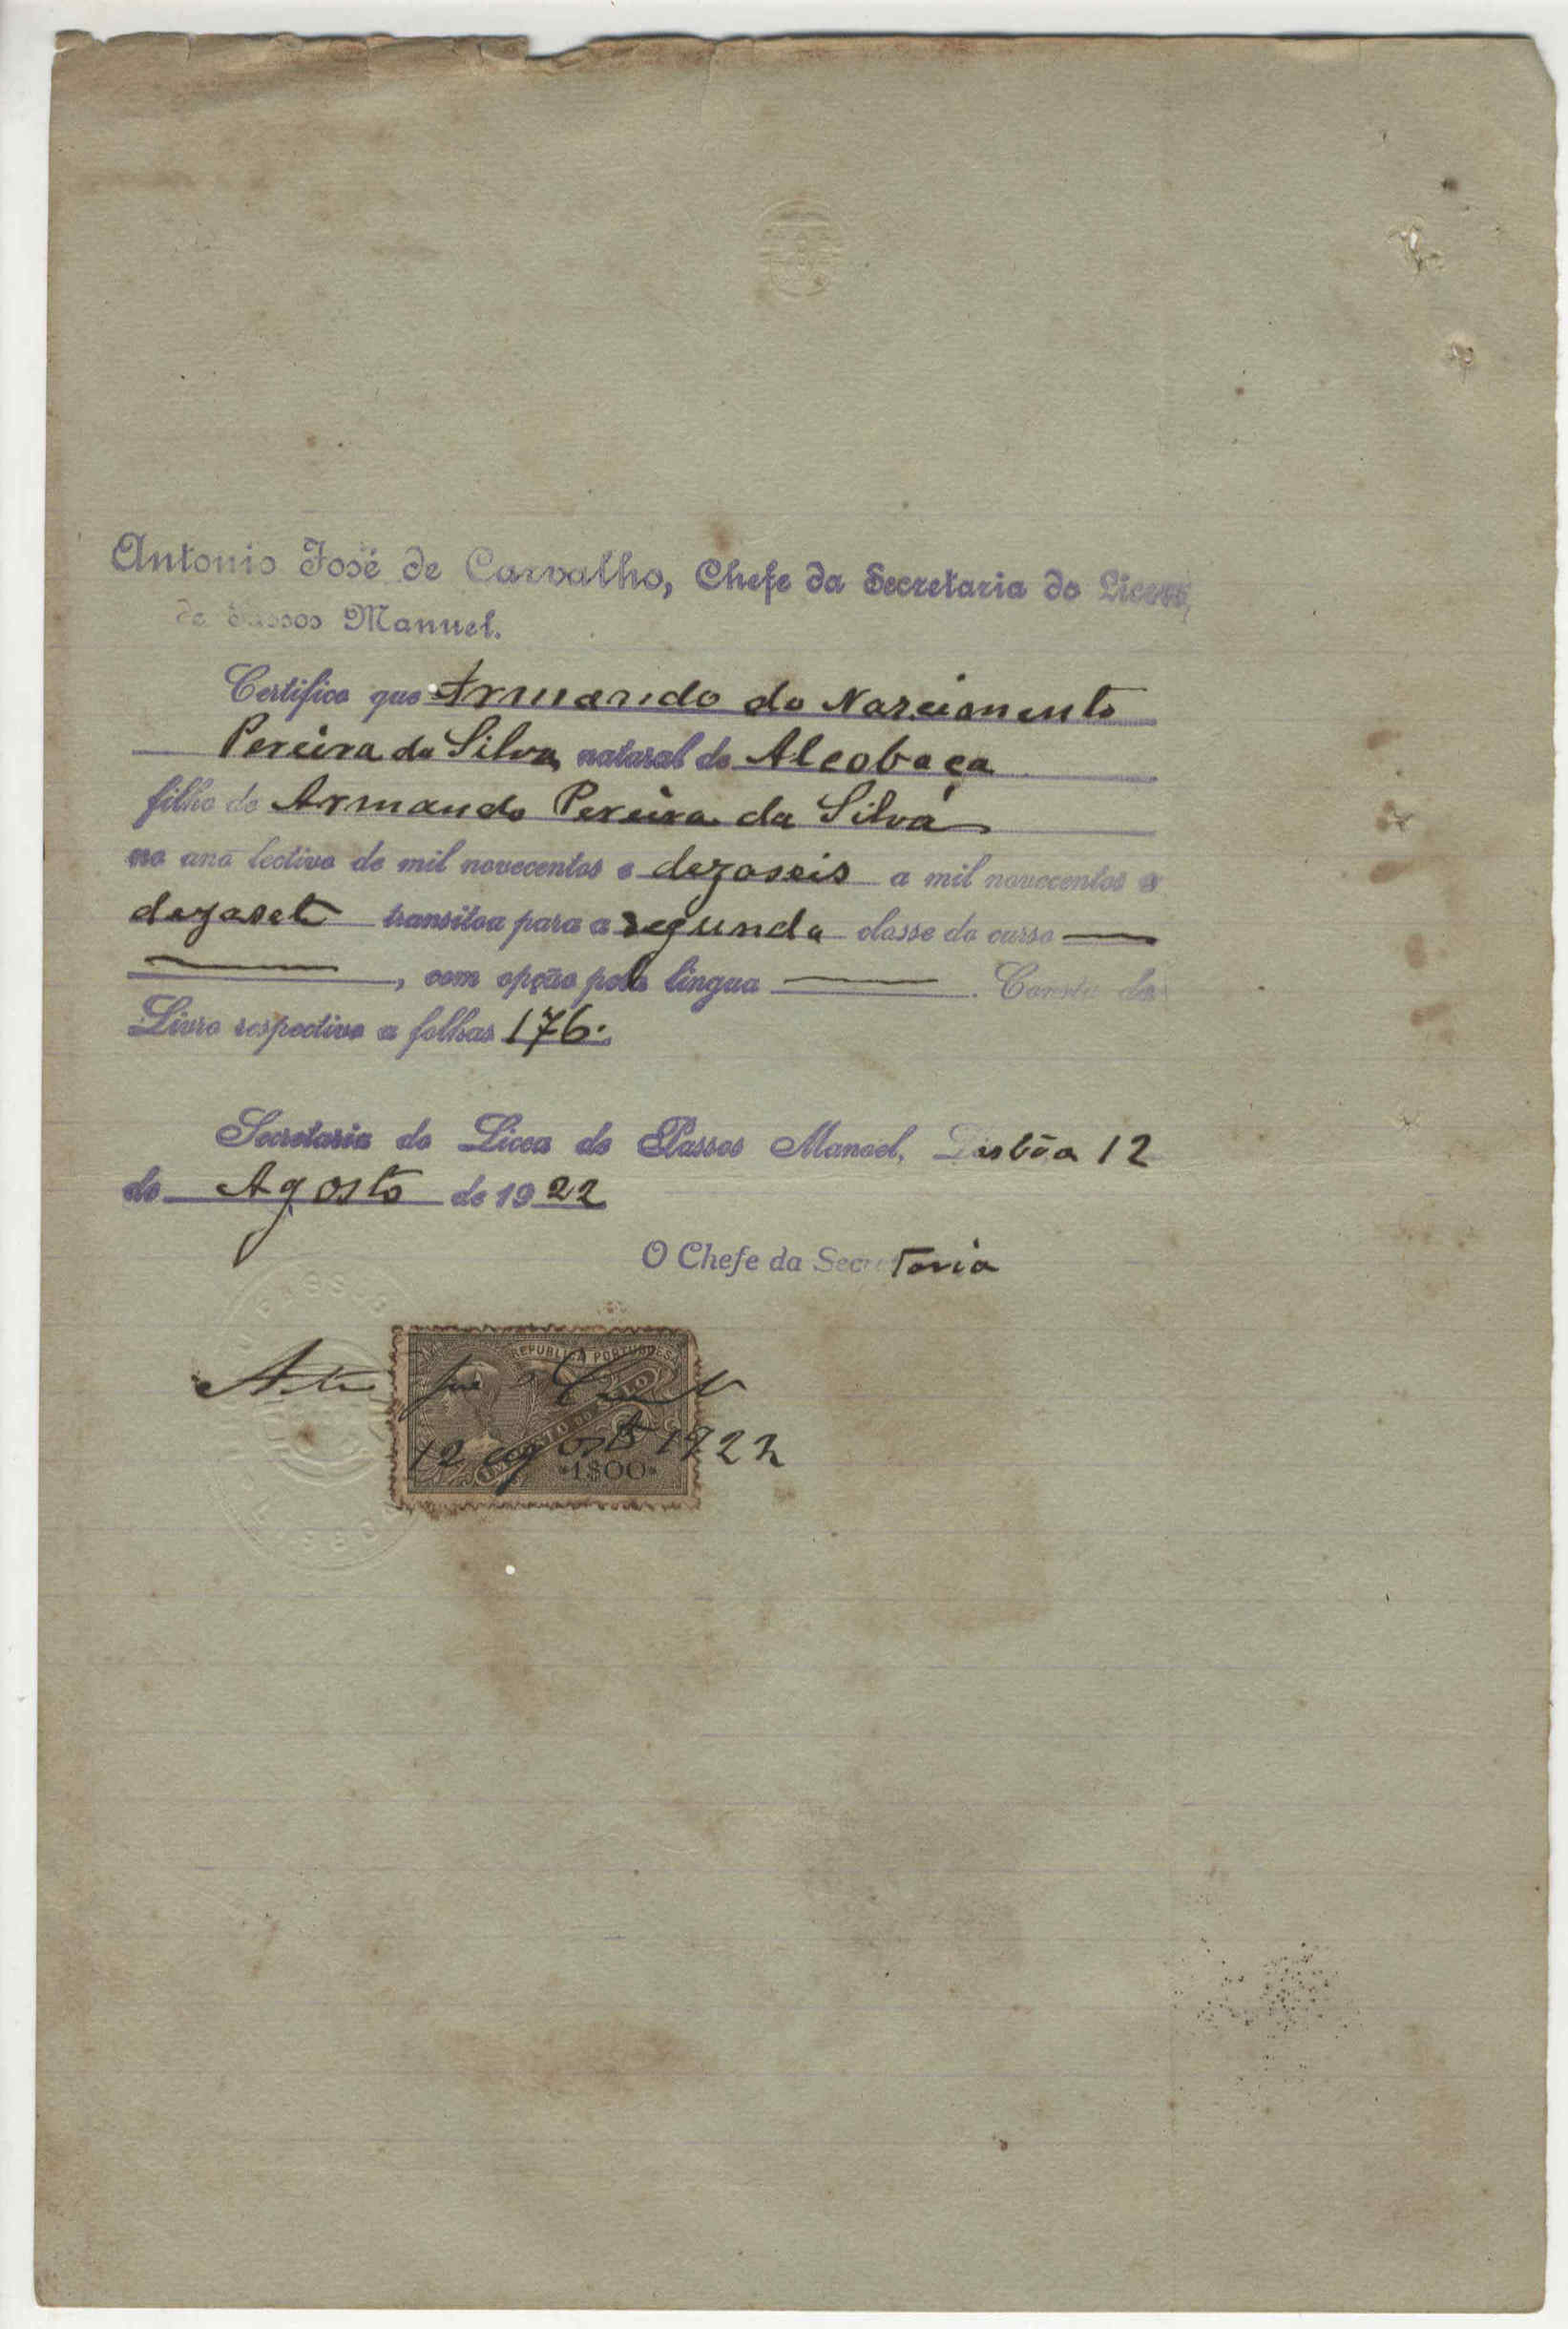 Antonio José de Carvalho, Chefe da Secretaria do Liceu
de Passos Manuel.
Certifico que Armando do Nascimento
Pereira da Silva, natural de Alcobaça
filho de Armando Pereira da Silva
no ano lectivo de mil novecentos e dezaseis a mil novecentos e
dezasete transitou para a segunda classe do curso —
—, com opção pela lingua —. Consta do
Livro respectivo a folhas 176.
Secretaria do Liceu de Passos Manoel, Lisbôa 12
de Agosto de 1922
O Chefe da Secretaria
REPUBLICA PORTUGUESA
IMPOSTO DO SELO
12 agosto 1922
1$00
PASSOS
LISBOA